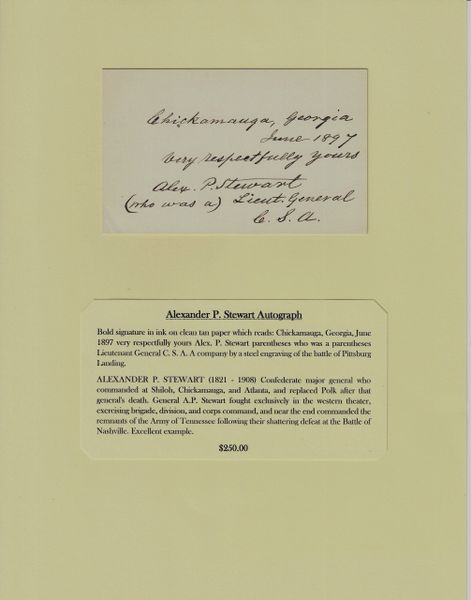 Chickamauga, Georgia
June 1897
Very respectfully yours
Alex. P. Stewart
(who was a) Lieut. General
C. S. A.
Alexander P. Stewart Autograph
Bold signature in ink on clean tan paper which reads: Chickamauga, Georgia, June
1897 very respectfully yours Alex. P. Stewart parentheses who was a parentheses
Lieutenant General C. S. A. A company by a steel engraving of the battle of Pittsburg
Landing.
ALEXANDER P. STEWART (1821 - 1908) Confederate major general who
commanded at Shiloh, Chickamauga, and Atlanta, and replaced Polk after that
general's death. General A.P. Stewart fought exclusively in the western theater,
exercising brigade, division, and corps command, and near the end commanded the
remnants of the Army of Tennessee following their shattering defeat at the Battle of
Nashville. Excellent example.
$250.00